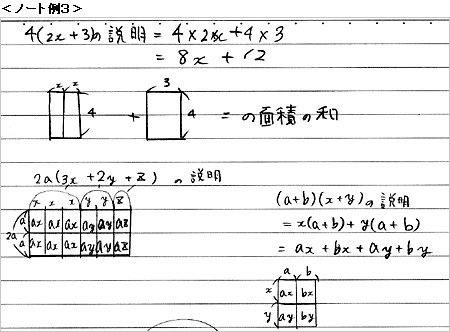 <ノート例3>
4(2x+3)の説明 = 4×2x+4×3
= 8x + 12
x x 3
4 + 4 = の面積の和
2a(3x+2y+z) の説明
x x x y y z
a ax ax ax ay ay az
2a
a ax ax ax ay ay az
(a+b)(x+y)の説明
= x(a+b)+y(a+b)
= ax+bx+ay+by
a b
x ax bx
y ay by